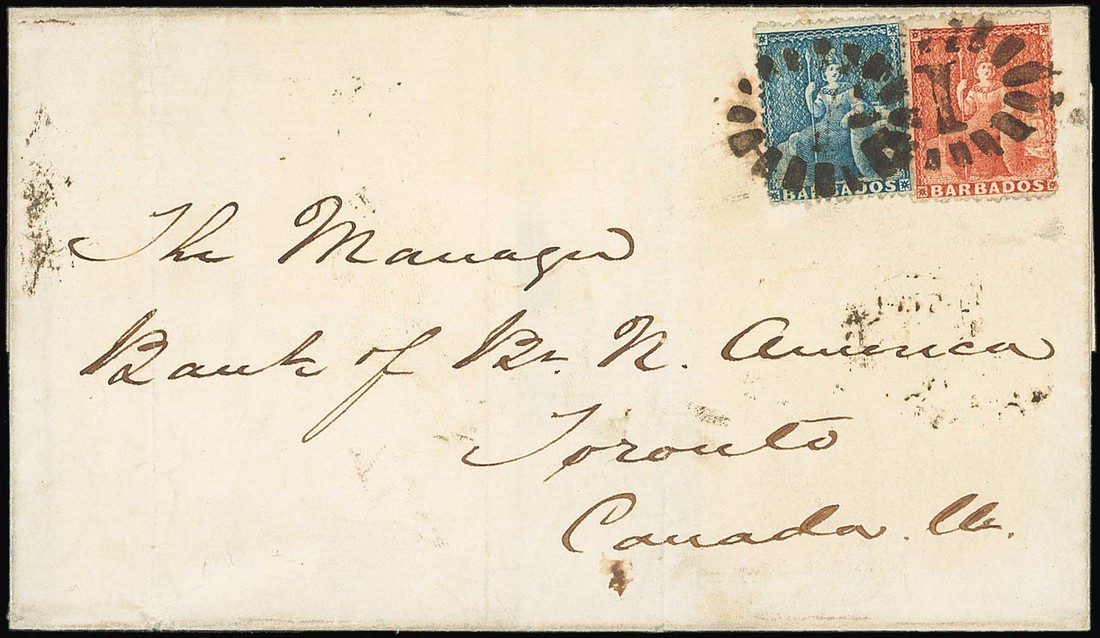 BARBADOS
BARBADOS
1
The Manager
Bank of Br. N. America
Toronto
Canada. W.